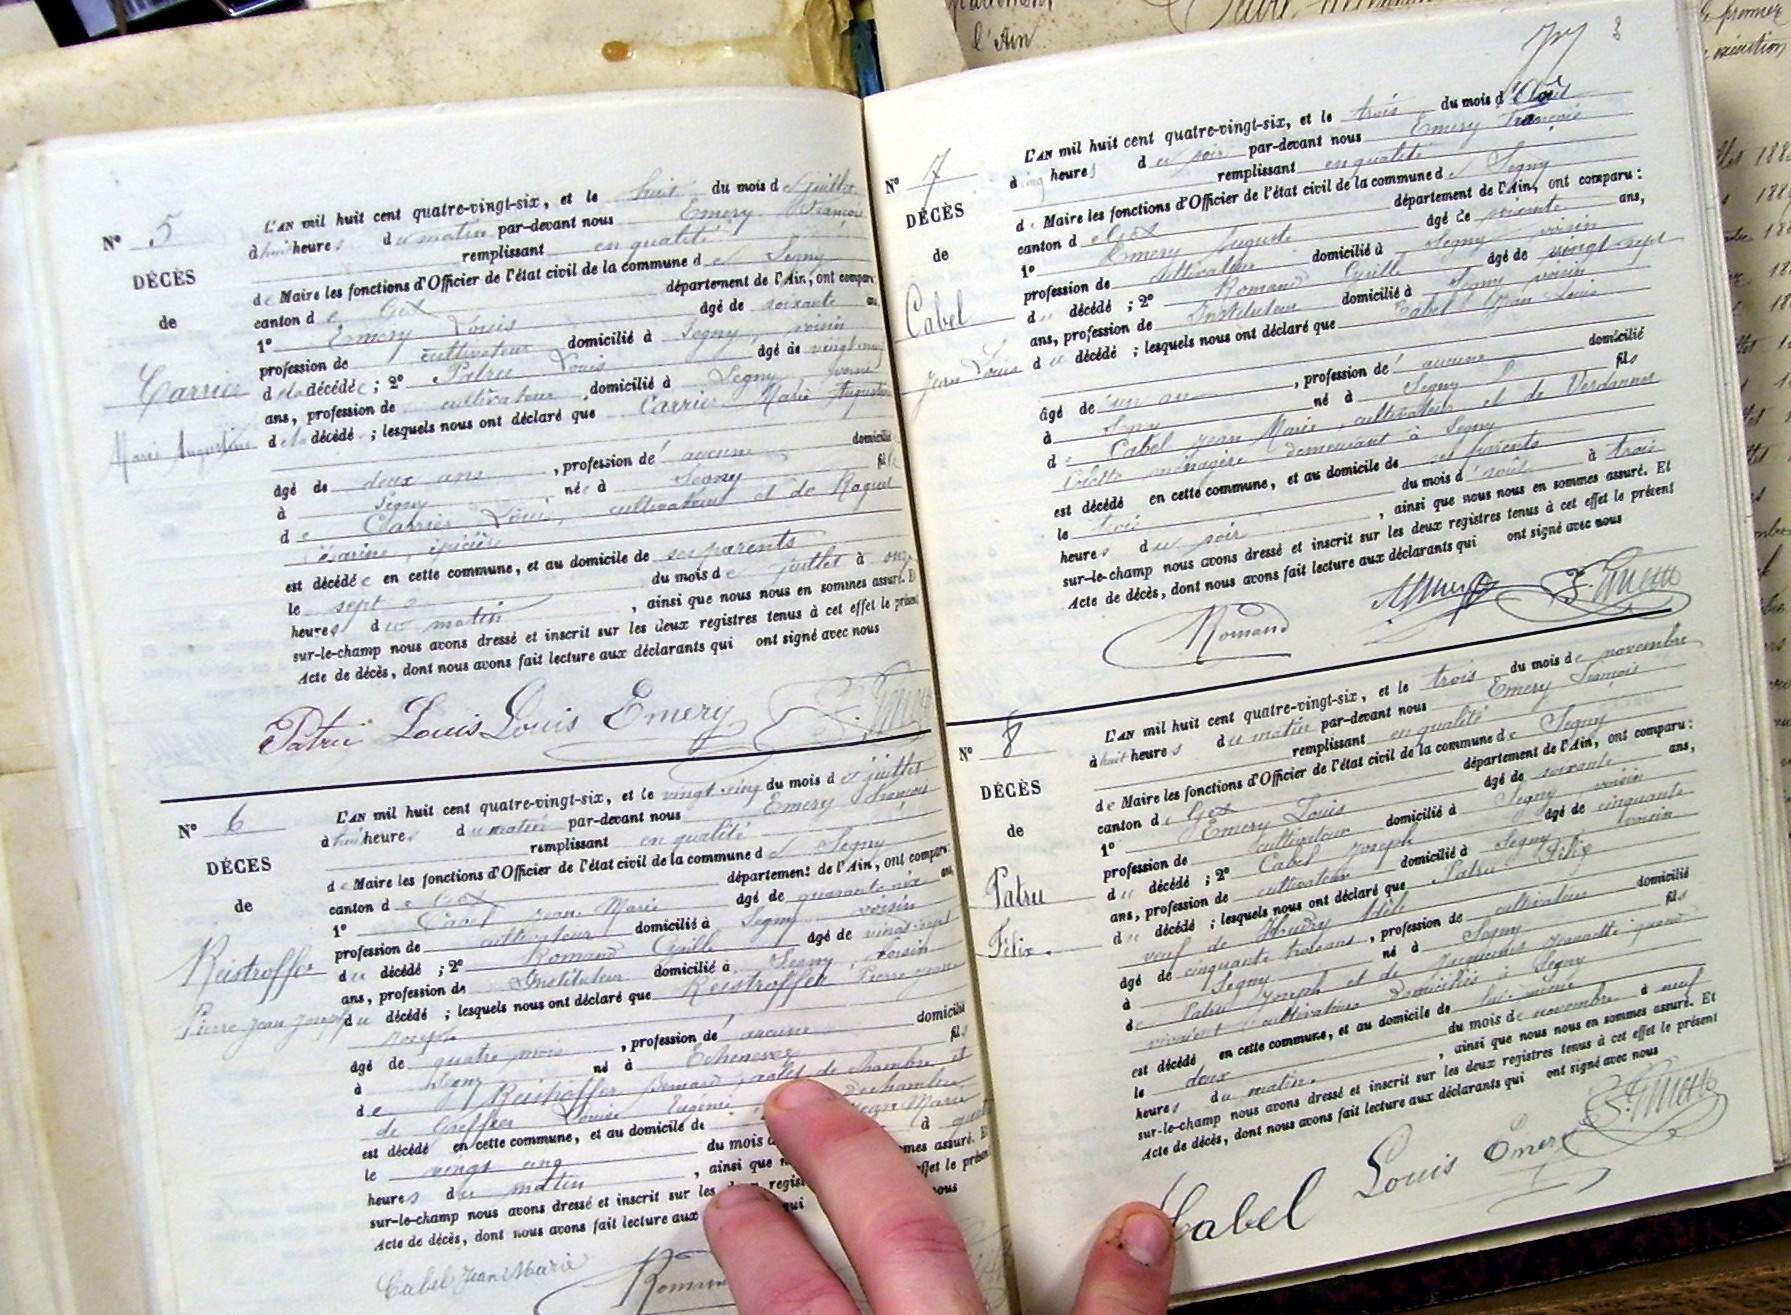 N° 5
DÉCÈS
de
Carrier
Marie Augustine
L'AN mil huit cent quatre-vingt-six, et le huit du mois de juillet
à huit heures du matin par-devant nous Emery François
remplissant en qualité
de Maire les fonctions d'Officier de l'état civil de la commune de Segny
canton de Gex département de l'Ain, ont comparu
1° Emery Louis âgé de soixante ans
profession de cultivateur domicilié à Segny, voisin
de la décédée ; 2° Patru Louis âgé de vingt neuf
ans, profession de cultivateur domicilié à Segny
de la décédée ; lesquels nous ont déclaré que Carrier Marie Augustine
domicilié
âgé de deux ans , profession d' aucune
à Segny née à Segny fille
de Carrier Louis, cultivateur et de Raquet
Césarine, épicière
est décédée en cette commune, et au domicile de ses parents
le sept du mois de juillet à onze
heures du matin , ainsi que nous nous en sommes assuré. Et
sur-le-champ nous avons dressé et inscrit sur les deux registres tenus à cet effet le présent
Acte de décès, dont nous avons fait lecture aux déclarants qui ont signé avec nous
Patru Louis Louis Emery
N° 6
DÉCES
de
Reistroffer
Pierre Jean Joseph
L'AN mil huit cent quatre-vingt-six, et le vingt-cinq du mois de juillet
à huit heures du matin par-devant nous Emery François
remplissant en qualité
de Maire les fonctions d'Officier de l'état civil de la commune de Segny
canton de Gex département de l'Ain, ont comparu
1° Cabel Jean Marie âgé de quarante six ans
profession de cultivateur domicilié à Segny voisin
du décédé ; 2° Romand Cyrille âgé de vingt-sept
ans, profession de Instituteur domicilié à Segny, voisin
du décédé ; lesquels nous ont déclaré que Reistroffer Pierre Jean
Joseph
âgé de quatre mois , profession d' aucune domicilié
à Segny né à Echenevex fils
de Reistroffer Bernard, valet de chambre et
de Greffier Louise Eugénie
est décédé en cette commune, et au domicile de Jean Marie
le vingt cinq du mois à
heures du matin , ainsi que sommes assuré. Et
sur-le-champ nous avons dressé et inscrit sur les deux effet le présent
Acte de décès, dont nous avons fait lecture aux qui nous
Cabel Jean Marie
N° 7
DÉCÈS
de
Cabel
Jean Louis
L'AN mil huit cent quatre-vingt-six, et le trois du mois d'Août
à cinq heures du soir par-devant nous Emery François
remplissant en qualité
de Maire les fonctions d'Officier de l'état civil de la commune de Segny
canton de Gex département de l'Ain, ont comparu :
1° Emery Auguste âgé de soixante ans,
profession de cultivateur domicilié à Segny voisin
du décédé ; 2° Romand Cyrille âgé de vingt-sept
ans, profession de Instituteur domicilié à Segny voisin
du décédé ; lesquels nous ont déclaré que Cabel Jean Louis
âgé de un an , profession d' aucune domicilié
à Segny né à Segny fils
de Cabel Jean Marie, cultivateur et de Verdonnet
Colette ménagère demeurant à Segny
est décédé en cette commune, et au domicile de ses parents
le trois du mois d'août à trois
heures du soir , ainsi que nous nous en sommes assuré. Et
sur-le-champ nous avons dressé et inscrit sur les deux registres tenus à cet effet le présent
Acte de décès, dont nous avons fait lecture aux déclarants qui ont signé avec nous
Romand
N° 8
DÉCÈS
de
Patru
Félix.
L'AN mil huit cent quatre-vingt-six, et le trois du mois de novembre
à huit heures du matin par-devant nous Emery François
remplissant en qualité
de Maire les fonctions d'Officier de l'état civil de la commune de Segny
canton de Gex département de l'Ain, ont comparu :
1° Emery Louis âgé de soixante ans,
profession de cultivateur domicilié à Segny, voisin
du décédé ; 2° Cabel Joseph âgé de cinquante
ans, profession de cultivateur domicilié à Segny voisin
du décédé ; lesquels nous ont déclaré que Patru Félix
veuf de Hudry Adèle
âgé de cinquante trois ans , profession de cultivateur domicilié
à Segny né à Segny fils
de Patru Joseph et de Jacquemet Jeannette quand
vivaient cultivateurs domiciliés à Segny
est décédé en cette commune, et au domicile de lui-même
le deux du mois de novembre à neuf
heures du matin. , ainsi que nous nous en sommes assuré. Et
sur-le-champ nous avons dressé et inscrit sur les deux registres tenus à cet effet le présent
Acte de décès, dont nous avons fait lecture aux déclarants qui ont signé avec nous
Cabel Louis Emery